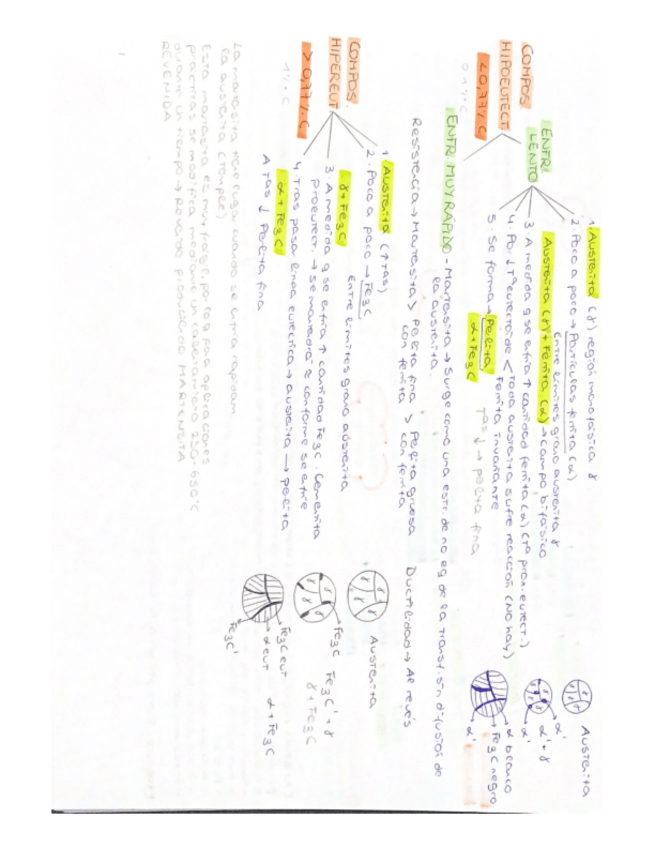 COMPOS. HIPOEUTECT
<0,77% C
0.1% C
ENFRI LENTO
1. AUSTENITA (γ) región monofásica γ
2. Poco a poco → Partículas ferrita (α)
entre límites grano austenita γ
AUSTENITA (γ) + FERRITA (α) → campo bifásico
3. A medida q se enfría ↑ cantidad ferrita (α) (Tª prox. eutect.)
4. Por ↓ Tª eutectoide < Toda austenita sufre reacción (No hay)
Ferrita invariante
5. Se forma → Perlita
α + Fe3C
Tas ↓ → perlita fina
AUSTENITA
α'
α' + γ
α blanco
Fe3C negro
α'
ENFRI MUY RÁPIDO - Martensita → Surge como una estr. de no eq de la transf. sin difusión de
la austenita.
Resistencia → Martensita > Perlita fina > Perlita gruesa
con ferrita con ferrita
Ductilidad → Al revés
COMPOS. HIPEREUT
>0,77% C
1% C
1. AUSTENITA (↑Tas)
2. Poco a poco → Fe3C
entre límites grano austenita
γ + Fe3C
3. A medida q se enfría ↑ cantidad Fe3C. Cementita
proeutect. → se mantendrá = conforme se enfríe
4. Tras pasar línea eutéctica → austenita → perlita
α + Fe3C
A Tas ↓ Perlita fina
Austenita
Fe3C
Fe3C' + γ
γ + Fe3C
Fe3C eut
α eut
Fe3C'
α + Fe3C
La martensita tiene lugar cuando se enfría rápidam.
la austenita (temple)
Esta martensita es muy frágil, por lo q para aplicaciones
prácticas se modifica mediante un calentamiento 250-650°C
durante un tiempo → Revenido produciendo MARTENSITA
REVENIDA